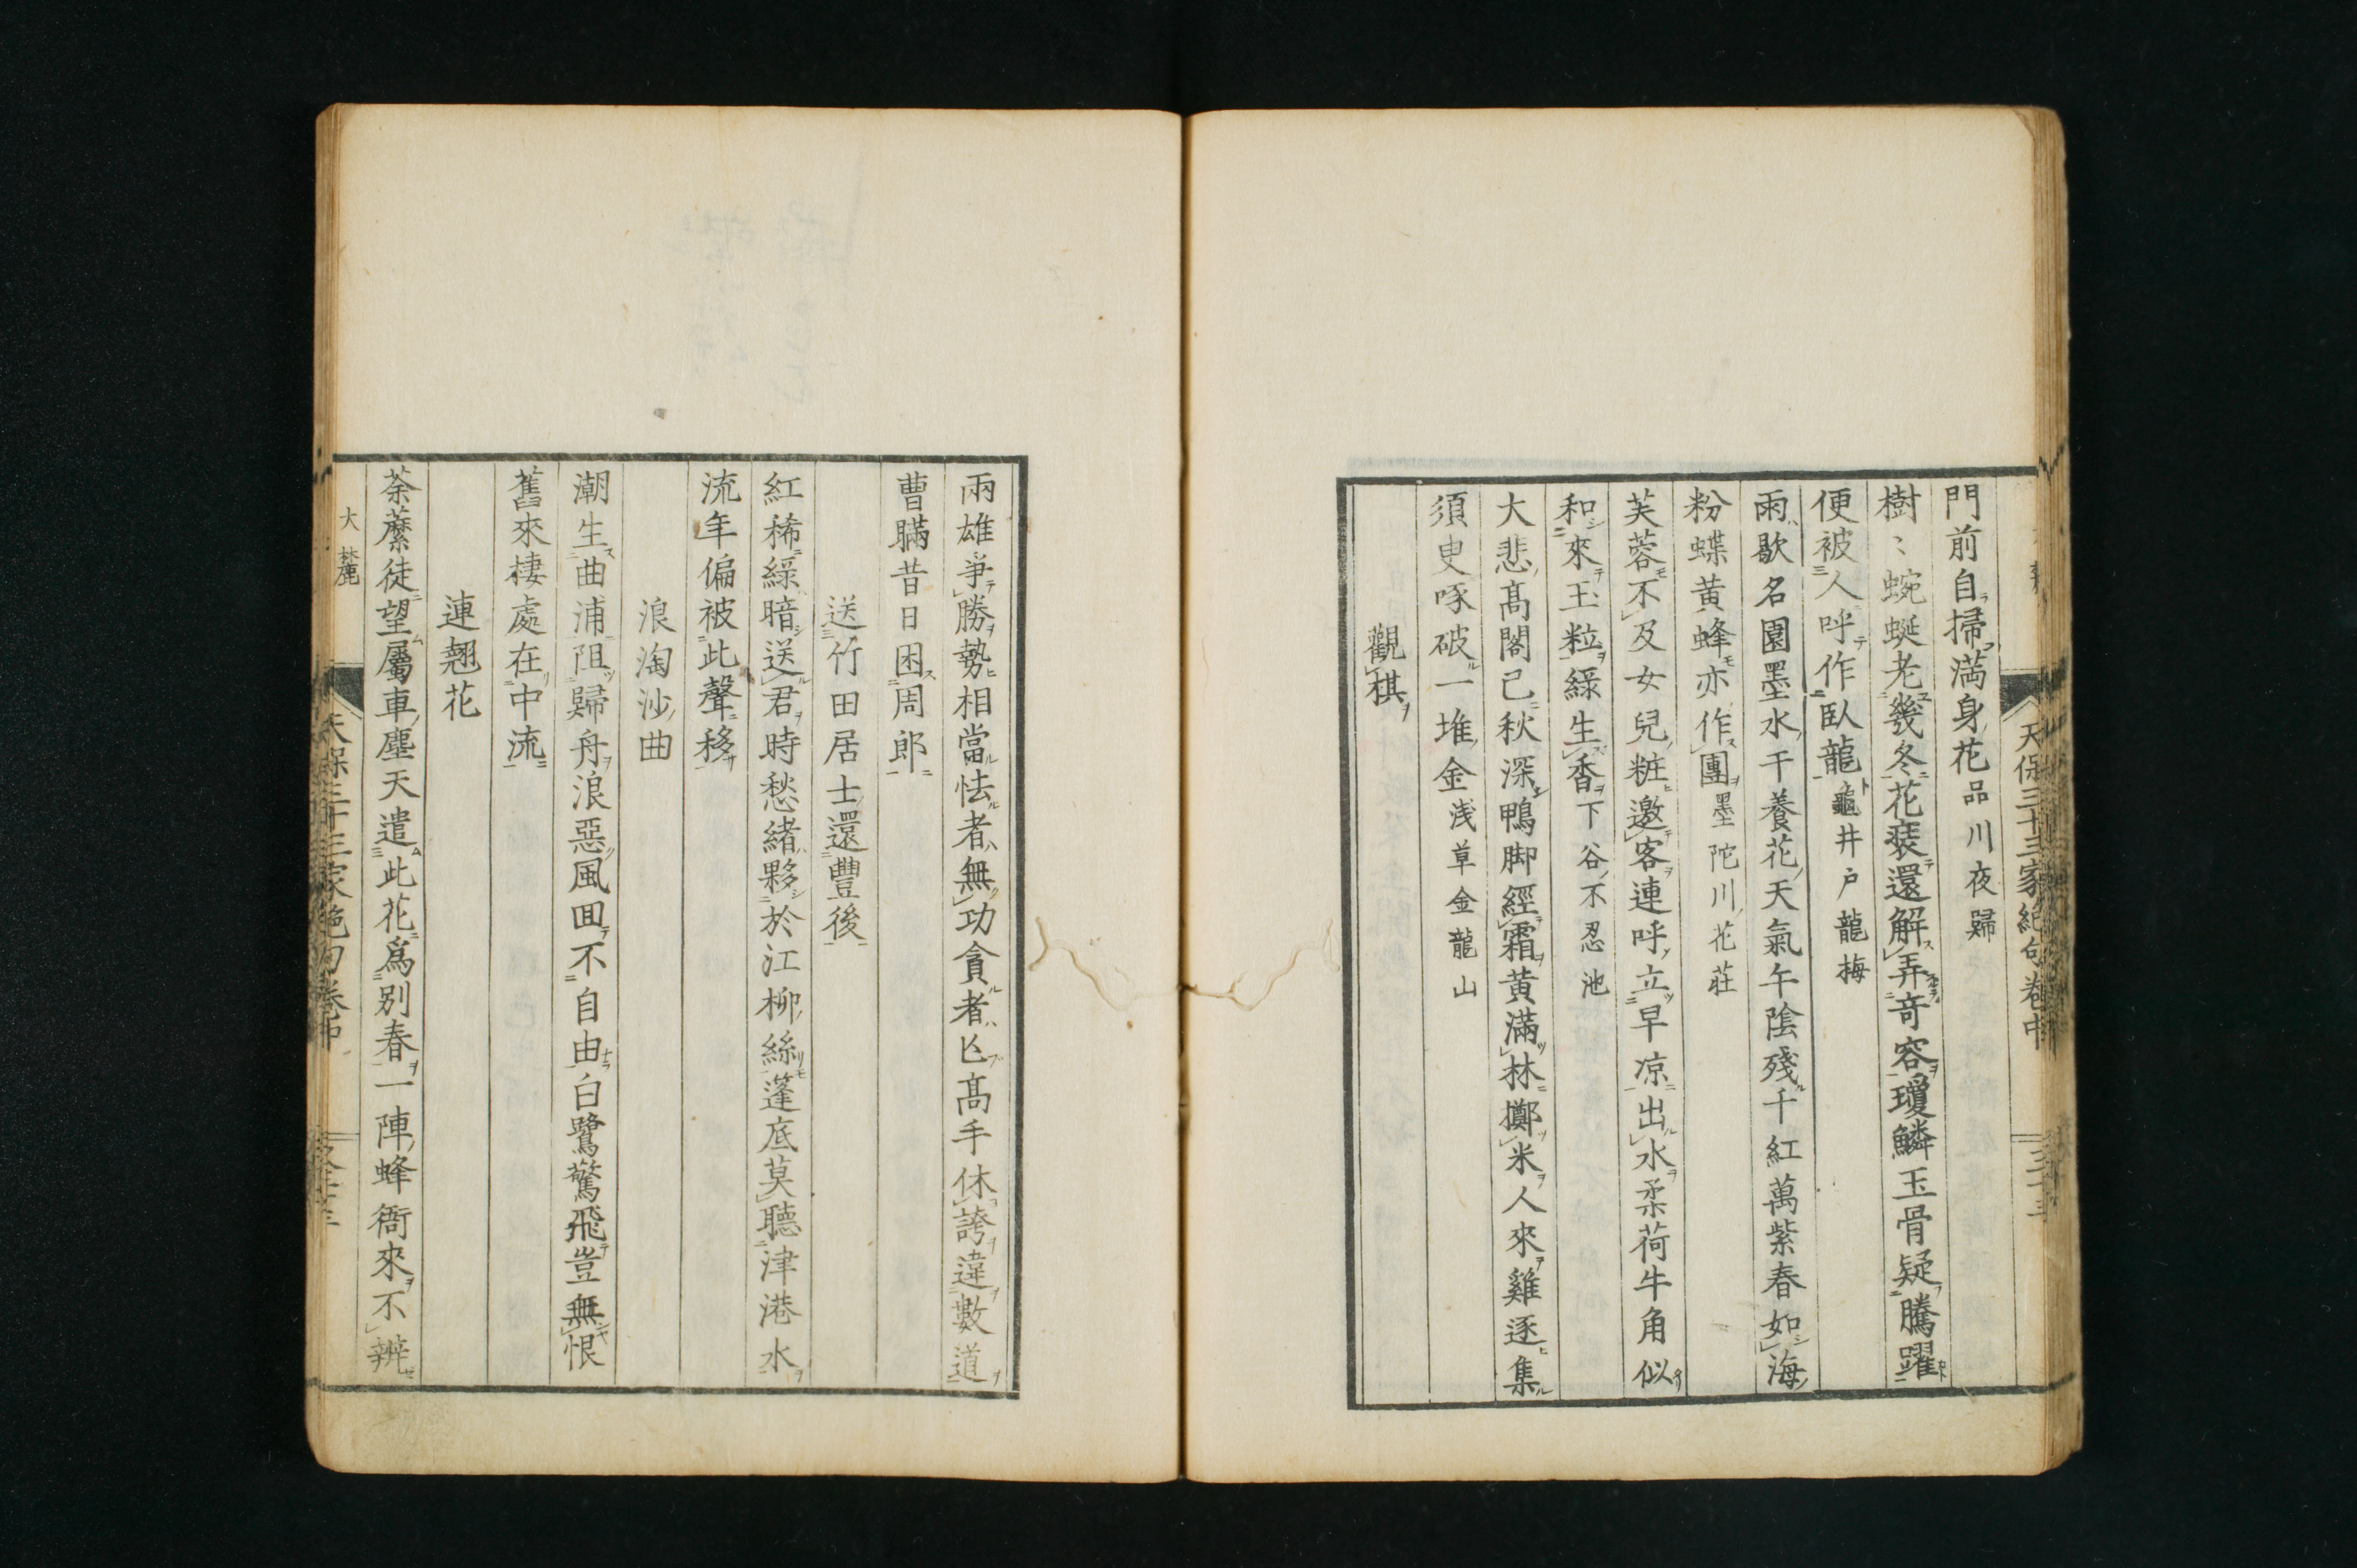 天保三十三家絶句卷中
門前自掃滿身花品川夜歸
樹〻蜿蜒老幾冬花裝還解弄奇容瓊鱗玉骨疑騰躍
便被人呼作臥龍龜井戸龍梅
雨歇名園墨水干養花天氣午陰殘千紅萬紫春如海
粉蝶黄蜂亦作團墨陀川花莊
芙蓉不及女兒粧邀客連呼立早凉出水柔荷牛角似
和來玉粒綠生香下谷不忍池
大悲髙閣已秋深鴨脚經霜黄滿林擲米人來雞逐集
須臾啄破一堆金浅草金龍山
觀棋
兩雄爭勝勢相當怯者無功貪者亡髙手休誇違數道
曹瞞昔日困周郎
送竹田居士還豐後
紅稀綠暗送君時愁緒夥於江柳絲蓬底莫聽津港水
流年偏被此聲移
浪淘沙曲
潮生曲浦阻歸舟浪惡風囬不自由白鷺驚飛豈無恨
舊來棲處在中流
連翹花
荼蘼徒望屬車塵天遣此花爲別春一陣蜂衙來不辨
大麓
天保三十三家絶句卷中